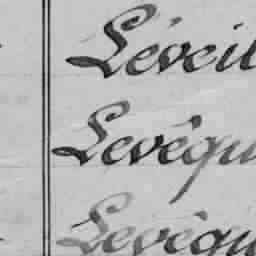 Léveil
Levêqu
Levêqu